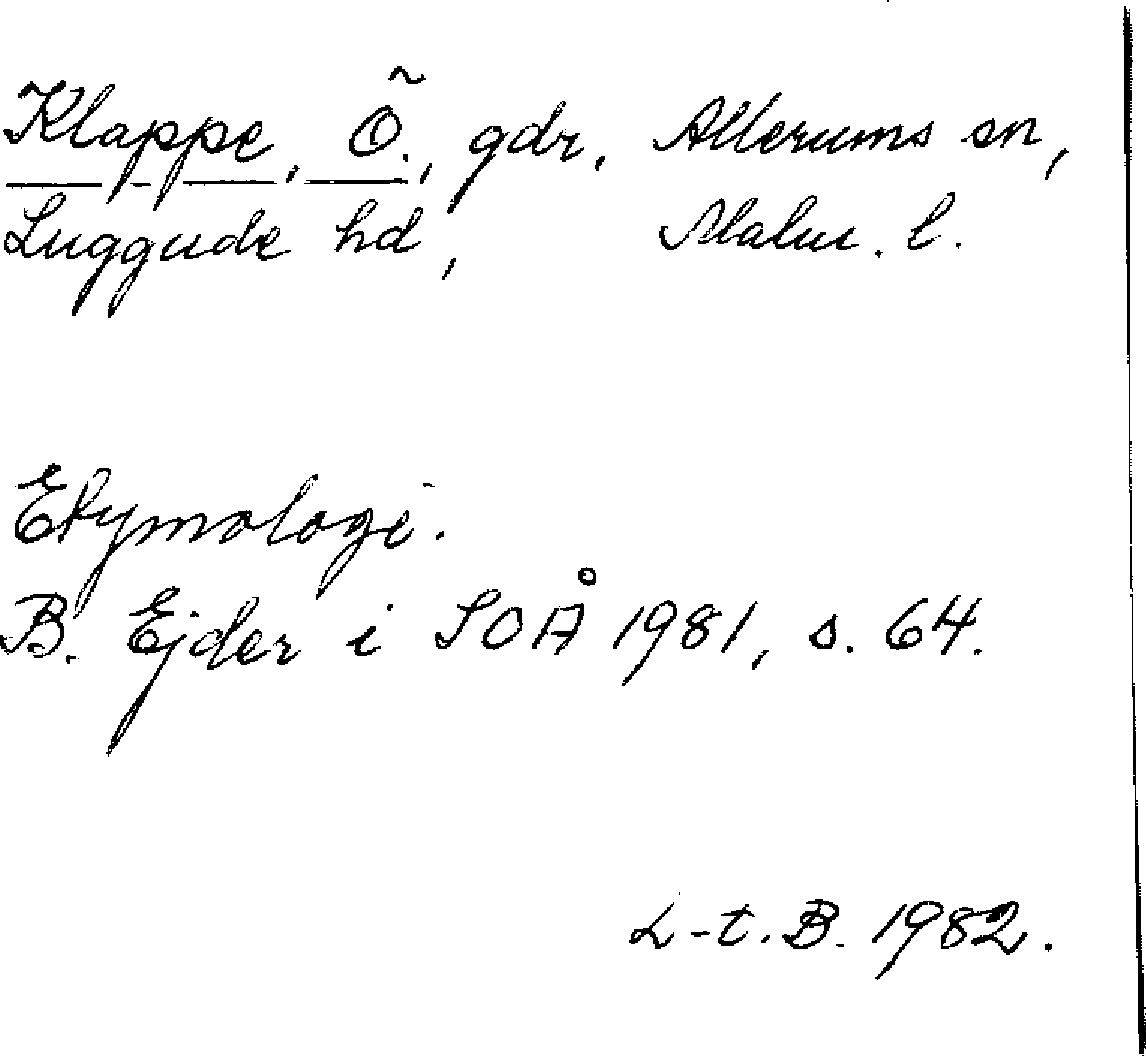 Klappe, Ö., gdr, Allerums sn,
Luggude hd, Malm. l.
Etymologi.
B. Ejder i SOÅ 1981, s. 64.
L-t. B. 1982.